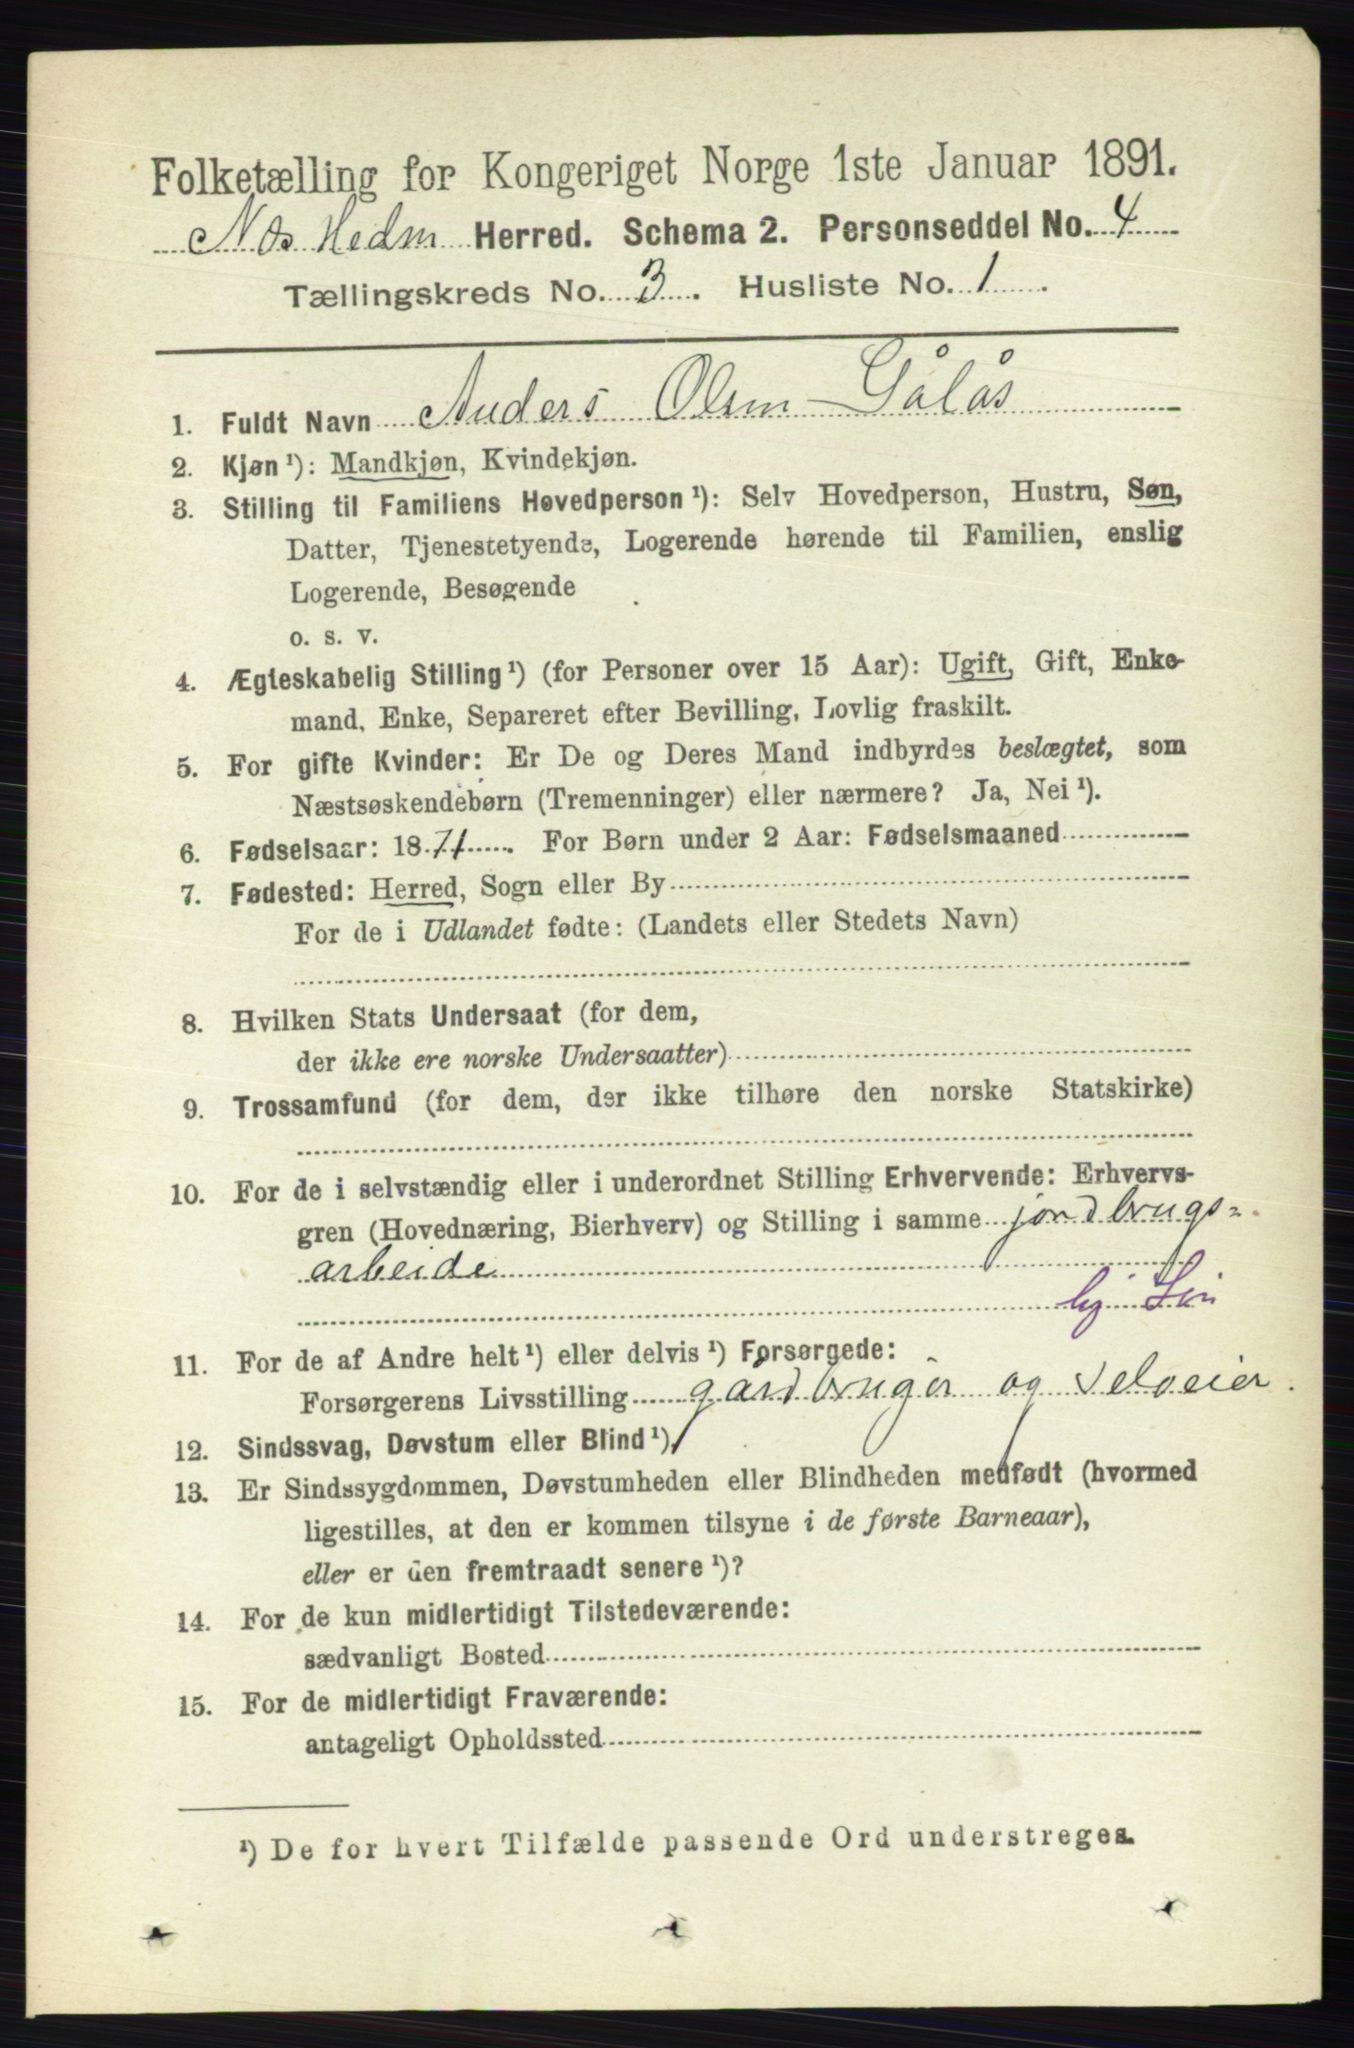 Folketælling for Kongeriget Norge 1ste Januar 1891.
Nes Hedm Herred. Schema 2. Personseddel No. 4
Tællingskreds No. 3. Husliste No. 1.
1. Fuldt Navn Anders Olsen Gålås
2. Kjøn ¹): Mandkjøn, Kvindekjøn.
3. Stilling til Familiens Hovedperson ¹): Selv Hovedperson, Hustru, Søn,
Datter, Tjenestetyende, Logerende hørende til Familien, enslig
Logerende, Besøgende
o. s. v.
4. Ægteskabelig Stilling ¹) (for Personer over 15 Aar): Ugift, Gift, Enke-
mand, Enke, Separeret efter Bevilling, Lovlig fraskilt.
5. For gifte Kvinder: Er De og Deres Mand indbyrdes beslægtet, som
Næstsøskendebørn (Tremenninger) eller nærmere? Ja, Nei ¹).
6. Fødselsaar: 1871. For Børn under 2 Aar: Fødselsmaaned
7. Fødested: Herred, Sogn eller By
For de i Udlandet fødte: (Landets eller Stedets Navn)
8. Hvilken Stats Undersaat (for dem,
der ikke ere norske Undersaatter)
9. Trossamfund (for dem, der ikke tilhøre den norske Statskirke)
10. For de i selvstændig eller i underordnet Stilling Erhvervende: Erhvervs-
gren (Hovednæring, Bierhverv) og Stilling i samme jordbrugs=
arbeide
11. For de af Andre helt ¹) eller delvis ¹) Forsørgede:
Forsørgerens Livsstilling gårdbruger og selveier.
12. Sindssvag, Døvstum eller Blind ¹)
13. Er Sindssygdommen, Døvstumheden eller Blindheden medfødt (hvormed
ligestilles, at den er kommen tilsyne i de første Barneaar),
eller er den fremtraadt senere ¹)?
14. For de kun midlertidigt Tilstedeværende:
sædvanligt Bosted
15. For de midlertidigt Fraværende:
antageligt Opholdssted
¹) De for hvert Tilfælde passende Ord understreges.